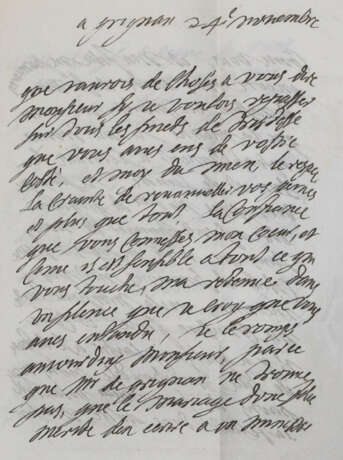 a grignan 24e novembre
que jaurois de choses a vous dire
monsieur si je voulois repasser
sur tous les sujets de tristesse
que vous aves eus de vostre
costé, et moy du mien, le respect
la crainte de renouveller vos peines
et plus que tout la confiance
que vous connesses mon coeur, et
comme il est sensible a tout ce qui
vous touche, ma retenue dans
un silence que je croy que vous
aves entendu, je le romps
aujourdhuy monsieur, parce
que Mr de grignan ne trouve
pas, que le mariage dont il
merite den ecrire a un